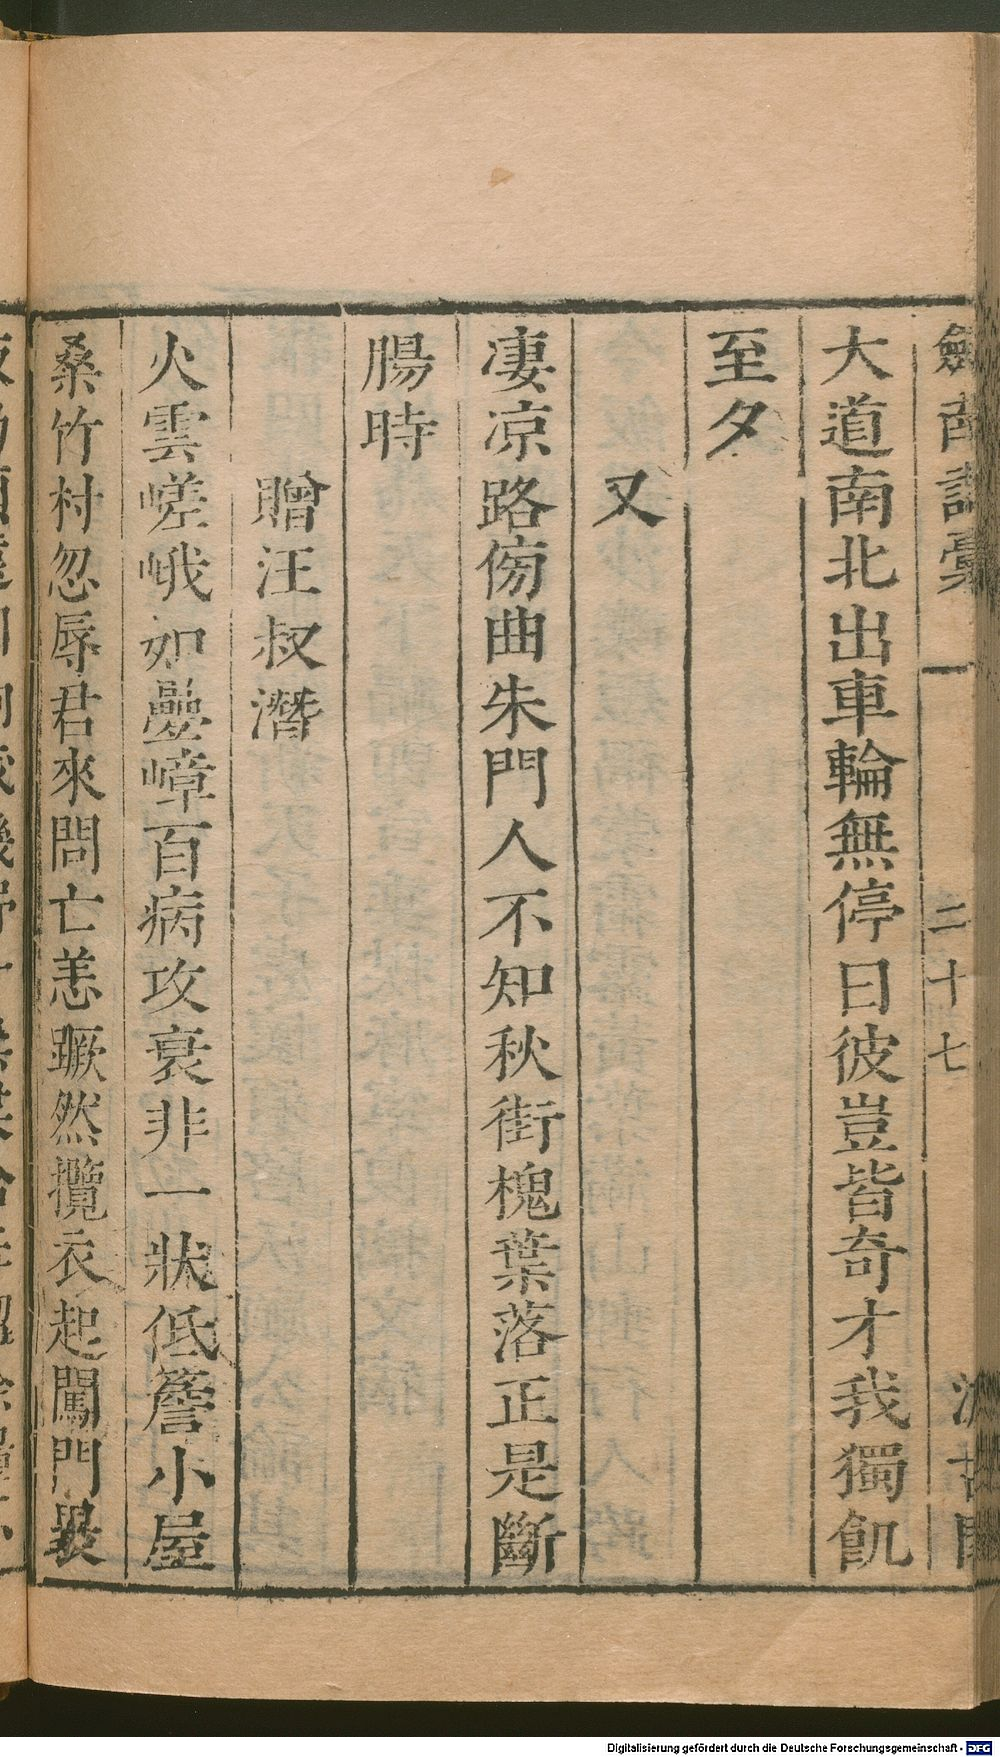 劍南詩稾 二十七 汲古閣
大道南北出車輪無停日彼豈皆奇才我獨飢
至夕
又
凄凉路傍曲朱門人不知秋街槐葉落正是斷
腸時
贈汪叔潛
火雲嵯峨如疊嶂百病攻衰非一狀低簷小屋
桑竹村忽辱君來問亡恙蹶然攬衣起闖門
Digitalisierung gefördert durch die Deutsche Forschungsgemeinschaft - DFG